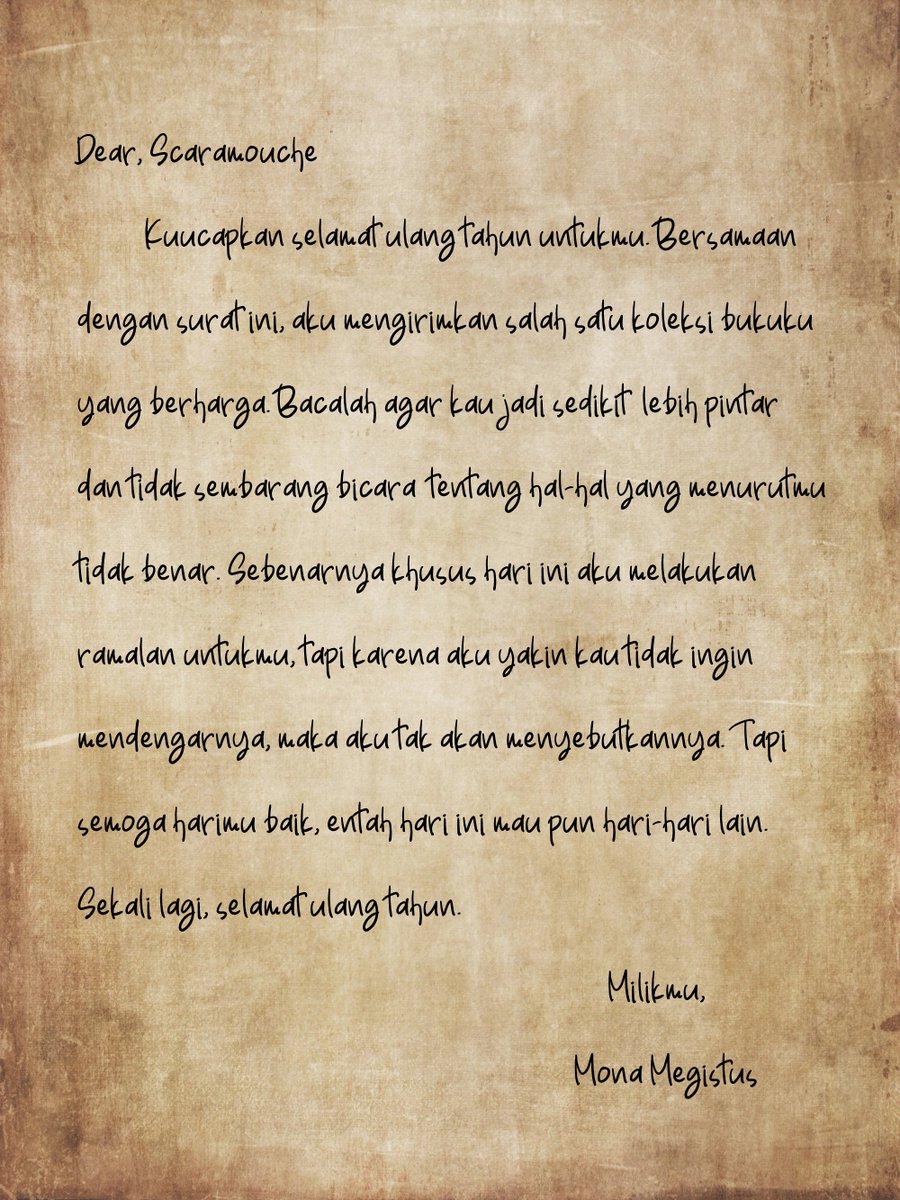 Dear, Scaramouche
Kuucapkan selamat ulang tahun untukmu. Bersamaan
dengan surat ini, aku mengirimkan salah satu koleksi bukuku
yang berharga. Bacalah agar kau jadi sedikit lebih pintar
dan tidak sembarang bicara tentang hal-hal yang menurutmu
tidak benar. Sebenarnya khusus hari ini aku melakukan
ramalan untukmu, tapi karena aku yakin kau tidak ingin
mendengarnya, maka aku tak akan menyebutkannya. Tapi
semoga harimu baik, entah hari ini mau pun hari-hari lain.
Sekali lagi, selamat ulang tahun.
Milikmu,
Mona Megistus